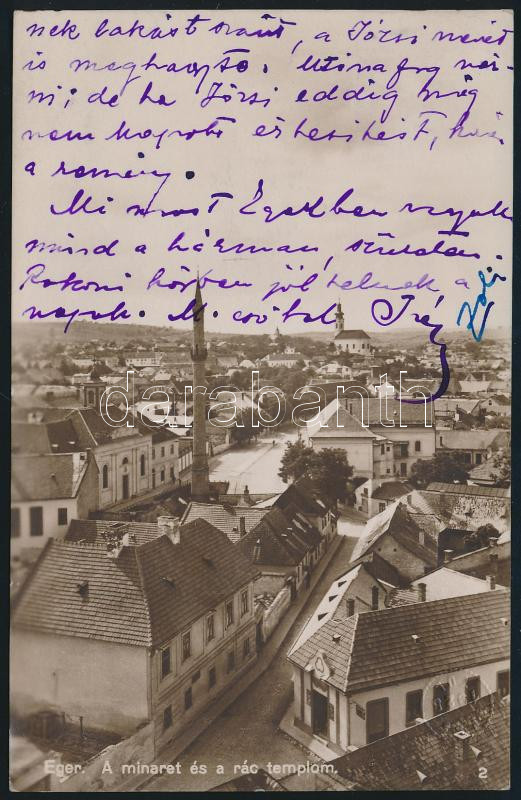 nek lakást szánt, a Józsi nevét
is meghagyta. Utána fog
ni; de ha Józsi eddig még
nem kapott értesítést, kevés
a remény.
Mi most Egerben vagyunk
mind a hárman,
Rokoni körben jól telnek a
napok. M. csókol Irén
Zoli
darabanth
Eger. A minaret és a rác templom.
2